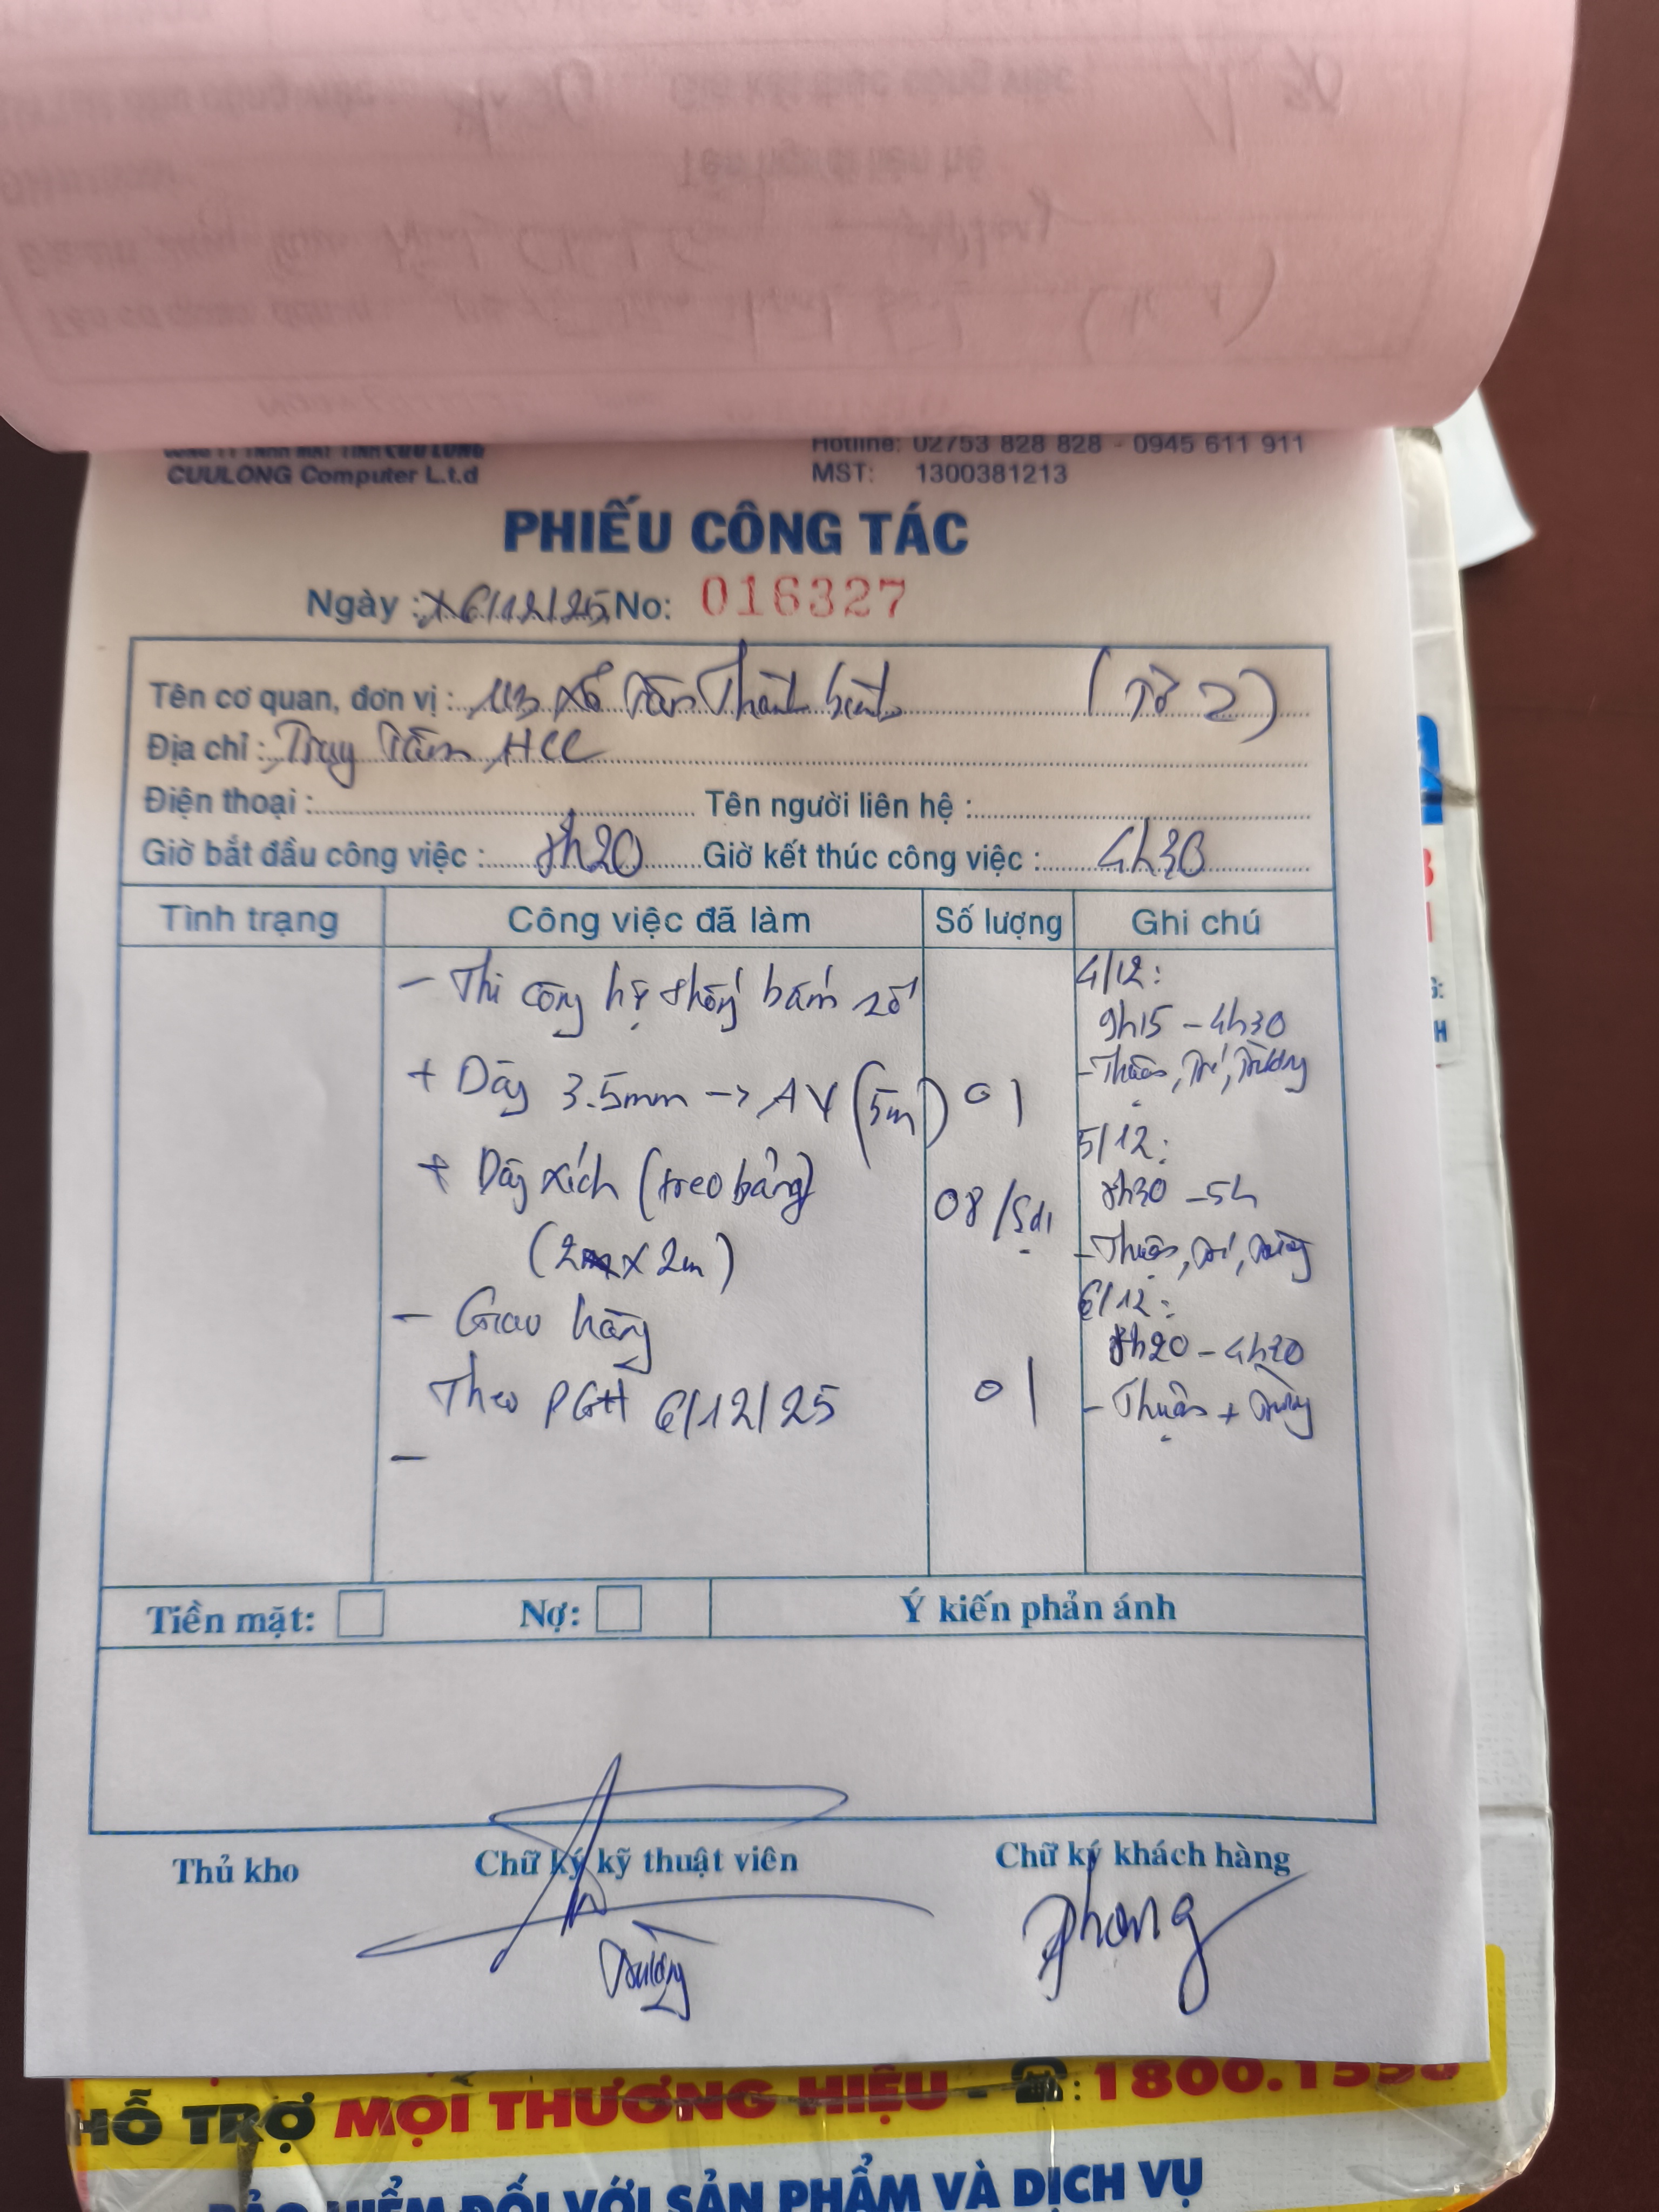 CÔNG TY TNHH MÁY TÍNH CỬU LONG
CUULONG Computer L.t.d
Hotline: 02753 828 828 - 0945 611 911
MST: 1300381213
PHIẾU CÔNG TÁC
Ngày : 6/12/25 No: 016327
Tên cơ quan, đơn vị : UB xã Tân Thành Bình (Tờ 2)
Địa chỉ : Trung Tâm HCC
Điện thoại : Tên người liên hệ :
Giờ bắt đầu công việc : 8h20 Giờ kết thúc công việc : 4h30
Tình trạng Công việc đã làm Số lượng Ghi chú
- Thi công hệ thống bấm số
+ Dây 3.5mm -> AV (5m) 01
+ Dây xích (treo bảng) 08/Sợi
(2m x 2m)
- Giao hàng
Theo PGH 6/12/25 01
-
4/12:
9h15 - 4h30
- Thuận, Trí, Trường
5/12:
8h30 - 5h
- Thuận, Trí, Trường
6/12:
8h20 - 4h30
- Thuận + Trường
Tiền mặt: Nợ: Ý kiến phản ánh
Thủ kho Chữ ký kỹ thuật viên Chữ ký khách hàng
Trường
Phong
HỖ TRỢ MỌI THƯƠNG HIỆU - ☎: 1800.1
BẢO HIỂM ĐỐI VỚI SẢN PHẨM VÀ DỊCH VỤ